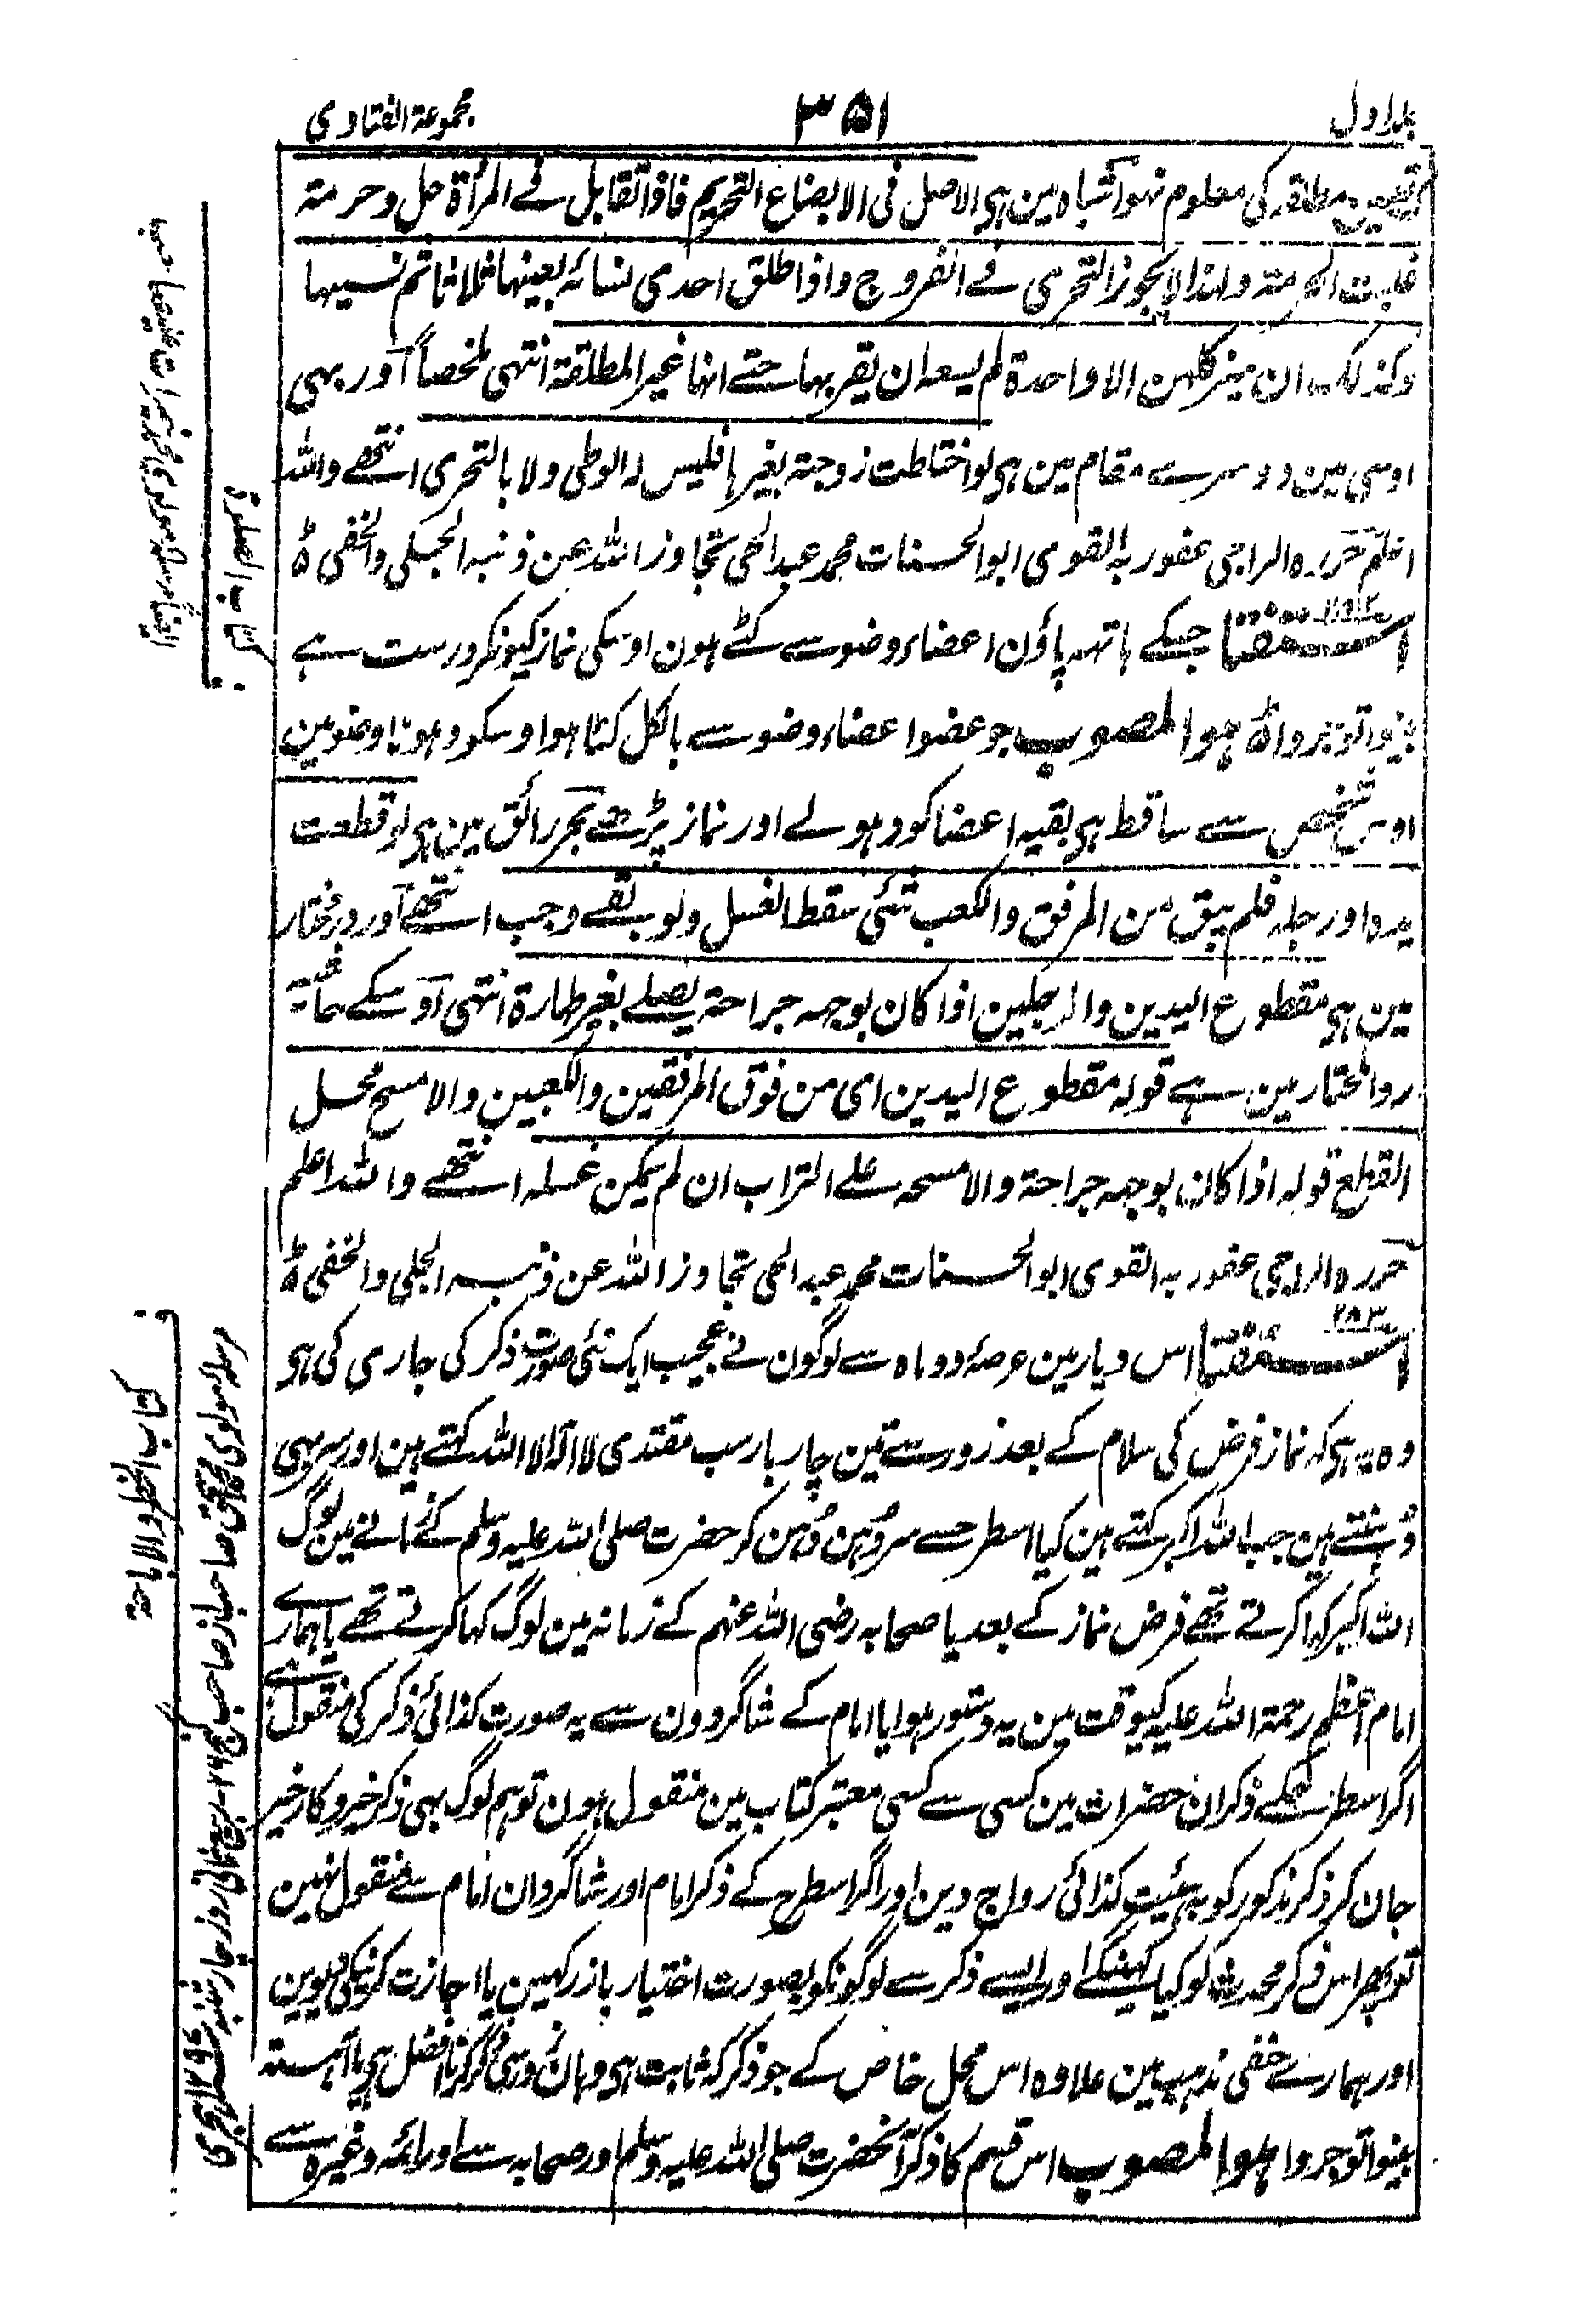 جلد اول
۳۵۱
مجموعۃ الفتاوی
تعیین مطلقہ کی معلوم نہو اشباہ مین ہی الاصل فی الابضاع التحریم فاذا تقابل فے المرأۃ حل و حرمتہ
غلبت الحرمتہ ولہذا لایجوز التحری فے الفروج واذا طلق احدی نسائہ بعینہا ثلاثا ثم نسیہا
وکذلک ان میز کلہن الا واحدۃ لم یسعہ ان یقربہا حتے انہا غیر المطلقۃ انتہی ملخصاً اور بہی
اوسی مین دوسرے مقام مین ہی لو اختلطت زوجتہ بغیرہا فلیس لہ الوطی ولا بالتحری انتہے واللہ
اعلم حررہ الراجی عفو ربہ القوی ابو الحسنات محمد عبد الحی تجاوز اللہ عن ذنبہ الجلی والخفی
استفتا جسکے ہاتھہ پاؤن اعضاء وضو سے کٹے ہون اوسکی نماز کیونکر درست ہے
بینوا توجروا ہو المصوب جو عضو اعضاء وضو سے بالکل کٹا ہوا وسکو دہونا وضو مین
اوس شخص سے ساقط ہی بقیہ اعضا کو دہولے اور نماز پڑھے بحر رائق مین ہی لو قطعت
یدہ او رجلہ فلم یبق من المرفق والکعب شئی سقط الغسل ولو بقے وجب انتہے اور در مختار
مین ہی مقطوع الیدین والرجلین اذا کان بوجہہ جراحۃ یصلے بغیر طہارۃ انتہی اوسکے حاشیہ
رد المختار مین ہے قولہ مقطوع الیدین ای من فوق المرفقین والکعبین والا مسح محل
القطع قولہ اذا کان بوجہہ جراحۃ والا مسحہ علے التراب ان لم یمکن غسلہ انتہے واللہ اعلم
حررہ الراجی عفو ربہ القوی ابو الحسنات محمد عبد الحی تجاوز اللہ عن ذنبہ الجلی والخفی
۲۸۳
استفتا اس دیار مین عرصۂ دو ماہ سے لوگون نے عجیب ایک نئی صورت ذکر کی جاری کی ہی
وہ یہ ہی کہ نماز فرض کی سلام کے بعد زور سے تین چار بار سب مقتدی لا الہ الا اللہ کہتے ہین اور سر بہی
دُہنتے ہین جب اللہ اکبر کہتے ہین کیا اسطرح سے سر دُہن دُہن کر حضرت صلی اللہ علیہ وسلم کے زمانے مین لوگ
اللہ اکبر کہا کرتے تھے فرض نماز کے بعد یا صحابہ رضی اللہ عنہم کے زمانہ مین لوگ کہا کرتے تھے یا ہمارے
امام اعظم رحمۃ اللہ علیہ کیوقت مین یہ دستور ہوا یا امام کے شاگردون سے یہ صورت کذائی ذکر کی منقول ہے
اگر اسطرحکے ذکر ان حضرات مین کسی سے کسی معتبر کتاب مین منقول ہون تو ہم لوگ بہی ذکر خیر و کار خیر
جان کر ذکر مذکور کو بہیئت کذائی رواج دین اور اگر اسطرح کے ذکر امام اور شاگردان امام سے منقول نہین
تو پھر اس ذکر محدث کو کیا کہینگے اور ایسے ذکر سے لوگونکو بصورت اختیار باز رکہین یا اجازت کرنیکی دیوین
اور ہمارے حنفی مذہب مین علاوہ اس محل خاص کے جو ذکر کہ ثابت ہی وہان زور سے ذکر کرنا افضل ہی یا آہستہ
بینوا توجروا ہو المصوب اس قسم کا ذکر آنحضرت صلی اللہ علیہ وسلم اور صحابہ سے اور ائمہ وغیرہ سے
کتاب الصلوۃ
کتاب الحظر والاباحۃ